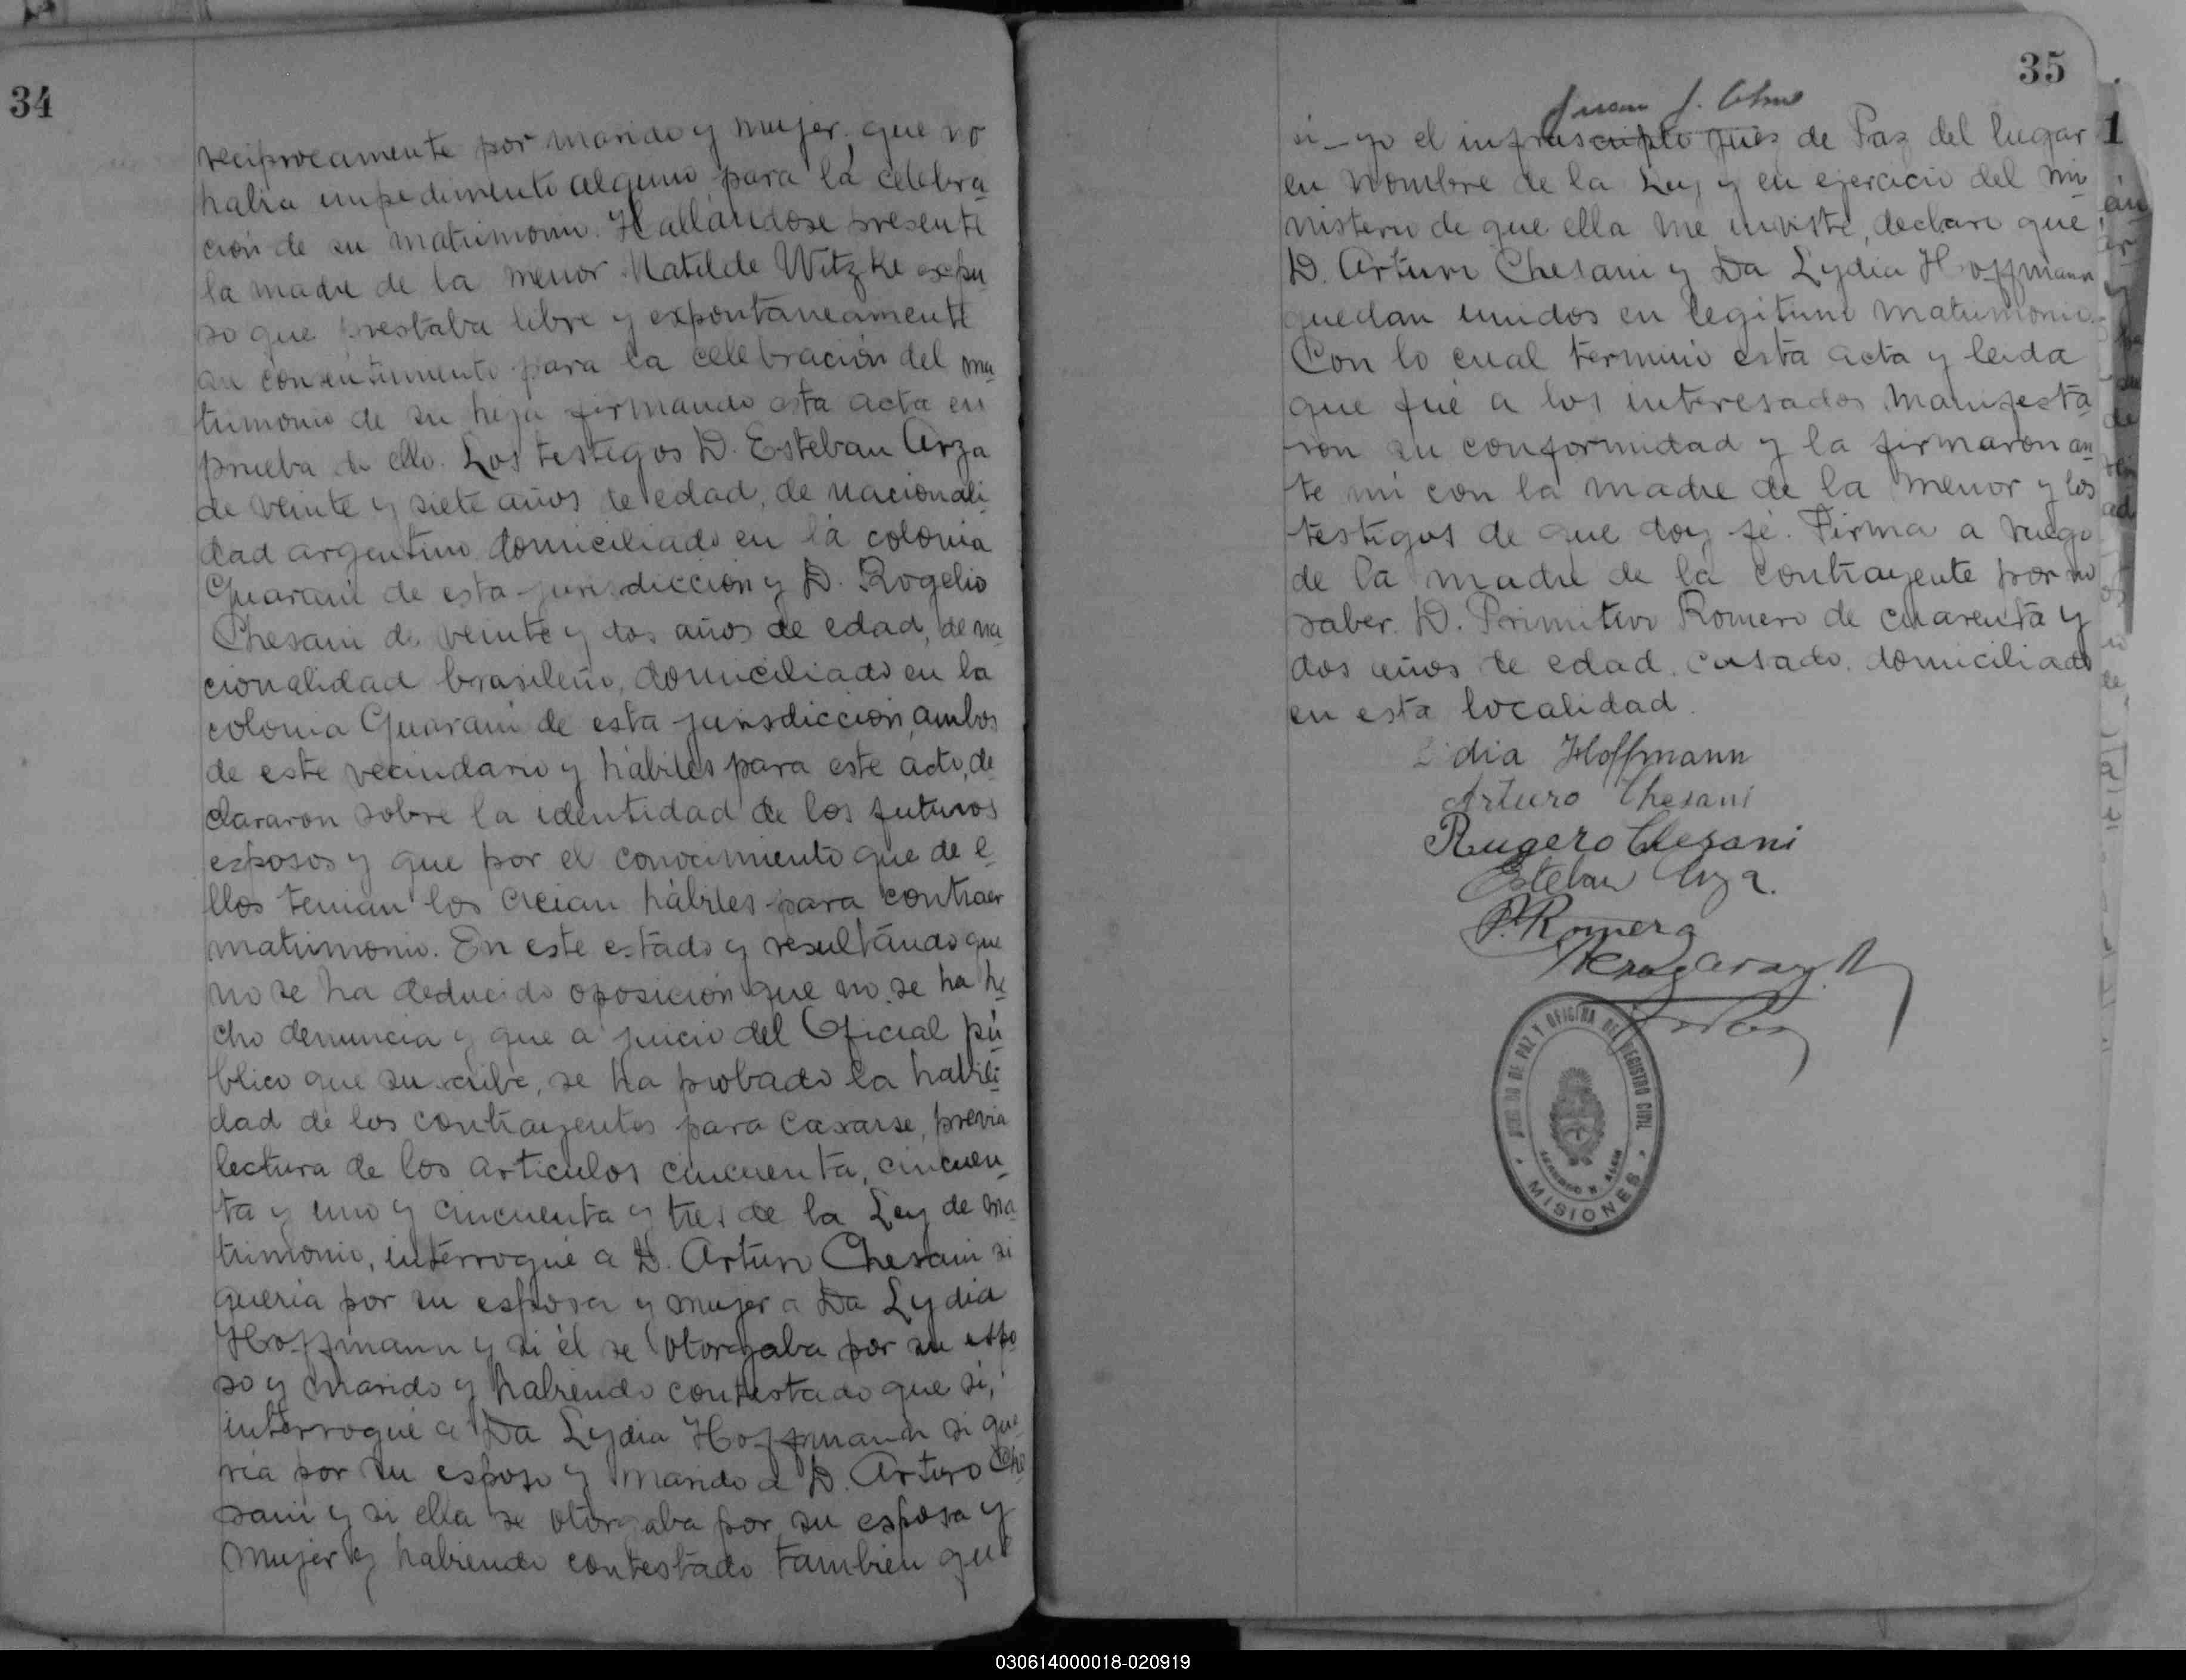 34
reciprocamente por marido y mujer, que no
habia impedimento alguno para la celebra
ción de su matrimonio. Hallándose presente
la madre de la menor Matilde Witzke expu
so que prestaba libre y expontaneamente
su consentimiento para la celebración del ma
trimonio de su hija firmando esta acta en
prueba de ello. Los testigos D. Esteban Arza
de veinte y siete años de edad, de nacionali
dad argentino domiciliado en la colonia
Guaraní de esta jurisdicción y D. Rogelio
Chesani de veinte y dos años de edad, de na
cionalidad brasileño, domiciliado en la
colonia Guaraní de esta jurisdicción, ambos
de este vecindario y hábiles para este acto, de
clararon sobre la identidad de los futuros
esposos y que por el conocimiento que de e
llos tenian los creian hábiles para contraer
matrimonio. En este estado y resultando que
no se ha deducido oposición que no se ha he
cho denuncia y que a juicio del Oficial pú
blico que suscribe, se ha probado la habili
dad de los contrayentes para casarse, previa
lectura de los articulos cincuenta, cincuen
ta y uno y cincuenta y tres de la Ley de ma
trimonio, interrogué a D. Arturo Chesani si
queria por su esposa y mujer a Da Lydia
Hoffmann y si él se otorgaba por su espo
so y marido y habiendo contestado que sí,
interrogué a Da Lydia Hoffmann si que
ria por su esposo y marido a D. Arturo Che
sani y si ella se otorgaba por su esposa y
mujer y habiendo contestado tambien que
35
Juan J.
si - yo el infrascripto juez de Paz del lugar
en nombre de la Ley y en ejercicio del mi
nisterio de que ella me inviste, declaro que
D. Arturo Chesani y Da Lydia Hoffmann
quedan unidos en legitimo matrimonio.
Con lo cual terminó esta acta y leida
que fué a los interesados manifesta
ron su conformidad y la firmaron an
te mí con la madre de la menor y los
testigos de que doy fé. Firma a ruego
de la madre de la contrayente por no
saber D. Primitivo Romero de cuarenta y
dos años de edad, casado, domiciliado
en esta localidad.
Lidia Hoffmann
Arturo Chesani
Rugero Chesani
Esteban Arza.
P. Romero
JUZGADO DE PAZ Y OFICINA DEL REGISTRO CIVIL
LEANDRO N. ALEM
MISIONES
1
030614000018-020919